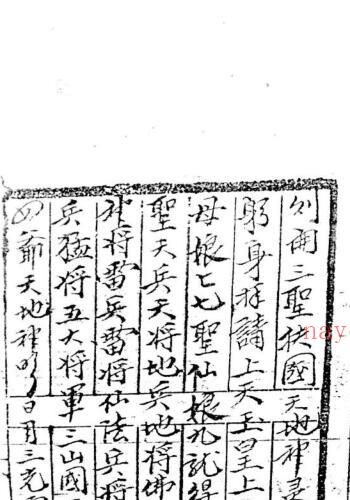 列開三聖扶國天地神
躬身拜請上天玉皇上
母娘七七聖仙娘九龍
聖天兵天將地兵地將佛
神將雷兵雷將仙法兵將
兵猛將五大將軍三山國
爺天地神明日月三光
nay